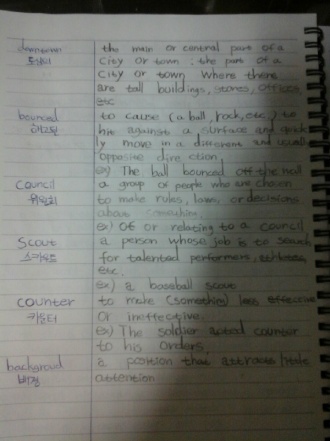 downtown the main or central part of a
도심지 city or town : the part of a
city or town where there
are tall buildings, stores, offices,
etc
bounced to cause (a ball, rock, etc.) to
hit against a surface and quick
ly move in a different and usually
opposite direction.
ex) The ball bounced off the wall
Council a group of people who are chosen
위원회 to make rules, laws, or decisions
about something
ex) Of or relating to a council
Scout a person whose job is to search
스카우트 for talented performers, athletes,
etc.
ex) a baseball scout
counter to make (something) less effective
카운터 or ineffective.
ex) The soldier acted counter
to his orders,
backgroud a position that attracts little
배경 attention